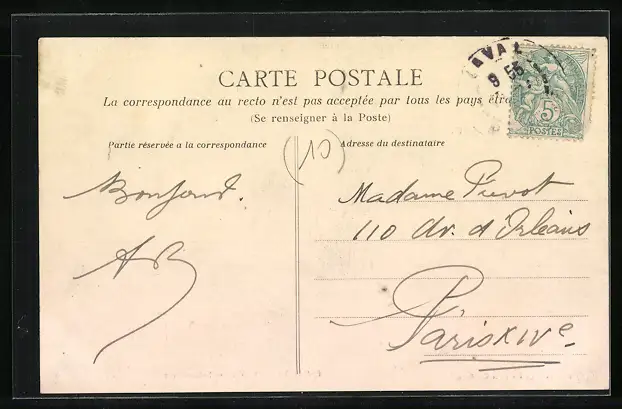 CARTE POSTALE
La correspondance au recto n'est pas acceptée par tous les pays étra
(Se renseigner à la Poste)
Partie réservée a la correspondance
Adresse du destinataire
(10)
LAVAL
5c
POSTES
Bonjour.
AB
Madame Prevot
110 Av. d'Orléans
Paris XIVe